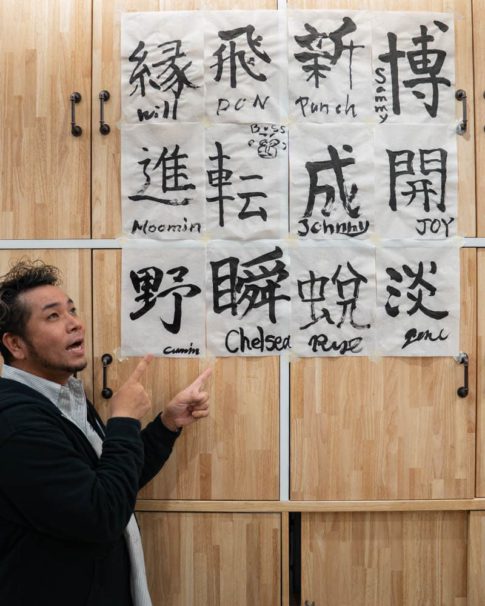 縁
Will
飛
DON
新
Punch
博
Sammy
進
Moomin
転
Boss
成
Johnny
開
JOY
野
cumin
瞬
Chelsea
蛻
淡